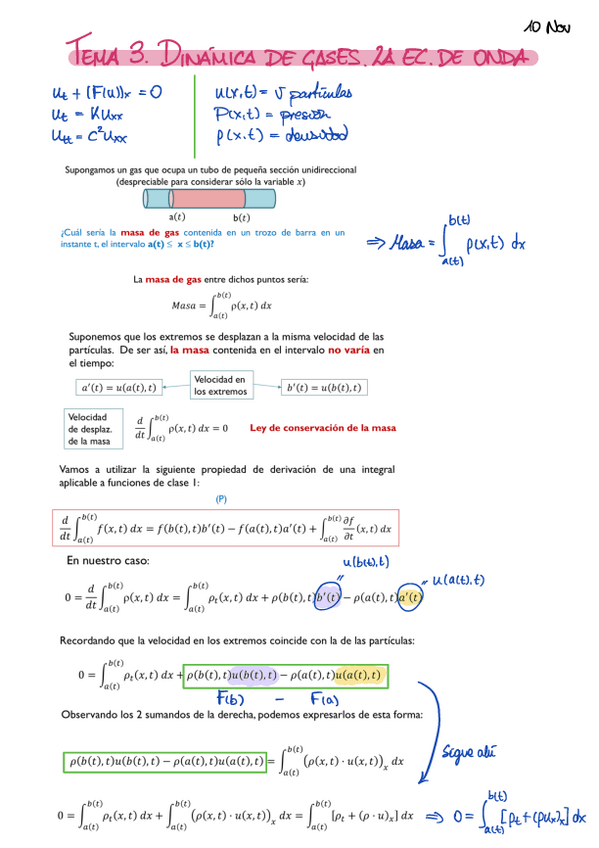 10 Nov
TEMA 3. DINÁMICA DE GASES. LA EC. DE ONDA
u_t + (F(u))_x = 0
u_t = K u_xx
u_tt = c²u_xx
u(x,t) = v partículas
P(x,t) = presión
ρ(x,t) = densidad
Supongamos un gas que ocupa un tubo de pequeña sección unidireccional
(despreciable para considerar sólo la variable x)
a(t) b(t)
¿Cuál sería la masa de gas contenida en un trozo de barra en un
instante t, el intervalo a(t) ≤ x ≤ b(t)?
⇒ Masa = ∫_{a(t)}^{b(t)} ρ(x,t) dx
La masa de gas entre dichos puntos sería:
Masa = ∫_{a(t)}^{b(t)} ρ(x,t) dx
Suponemos que los extremos se desplazan a la misma velocidad de las
partículas. De ser así, la masa contenida en el intervalo no varía en
el tiempo:
a'(t) = u(a(t),t)
Velocidad en
los extremos
b'(t) = u(b(t),t)
Velocidad
de desplaz.
de la masa
d/dt ∫_{a(t)}^{b(t)} ρ(x,t) dx = 0
Ley de conservación de la masa
Vamos a utilizar la siguiente propiedad de derivación de una integral
aplicable a funciones de clase 1:
(P)
d/dt ∫_{a(t)}^{b(t)} f(x,t) dx = f(b(t),t)b'(t) − f(a(t),t)a'(t) + ∫_{a(t)}^{b(t)} ∂f/∂t (x,t) dx
En nuestro caso:
u(b(t),t)
u(a(t),t)
0 = d/dt ∫_{a(t)}^{b(t)} ρ(x,t) dx = ∫_{a(t)}^{b(t)} ρ_t(x,t) dx + ρ(b(t),t)b'(t) − ρ(a(t),t)a'(t)
Recordando que la velocidad en los extremos coincide con la de las partículas:
0 = ∫_{a(t)}^{b(t)} ρ_t(x,t) dx + ρ(b(t),t)u(b(t),t) − ρ(a(t),t)u(a(t),t)
F(b) − F(a)
Observando los 2 sumandos de la derecha, podemos expresarlos de esta forma:
ρ(b(t),t)u(b(t),t) − ρ(a(t),t)u(a(t),t) = ∫_{a(t)}^{b(t)} (ρ(x,t) · u(x,t))_x dx
Sigue ahí
0 = ∫_{a(t)}^{b(t)} ρ_t(x,t) dx + ∫_{a(t)}^{b(t)} (ρ(x,t) · u(x,t))_x dx = ∫_{a(t)}^{b(t)} [ρ_t + (ρ · u)_x] dx ⇒ 0 = ∫_{a(t)}^{b(t)} [ρ_t + (ρu)_x] dx